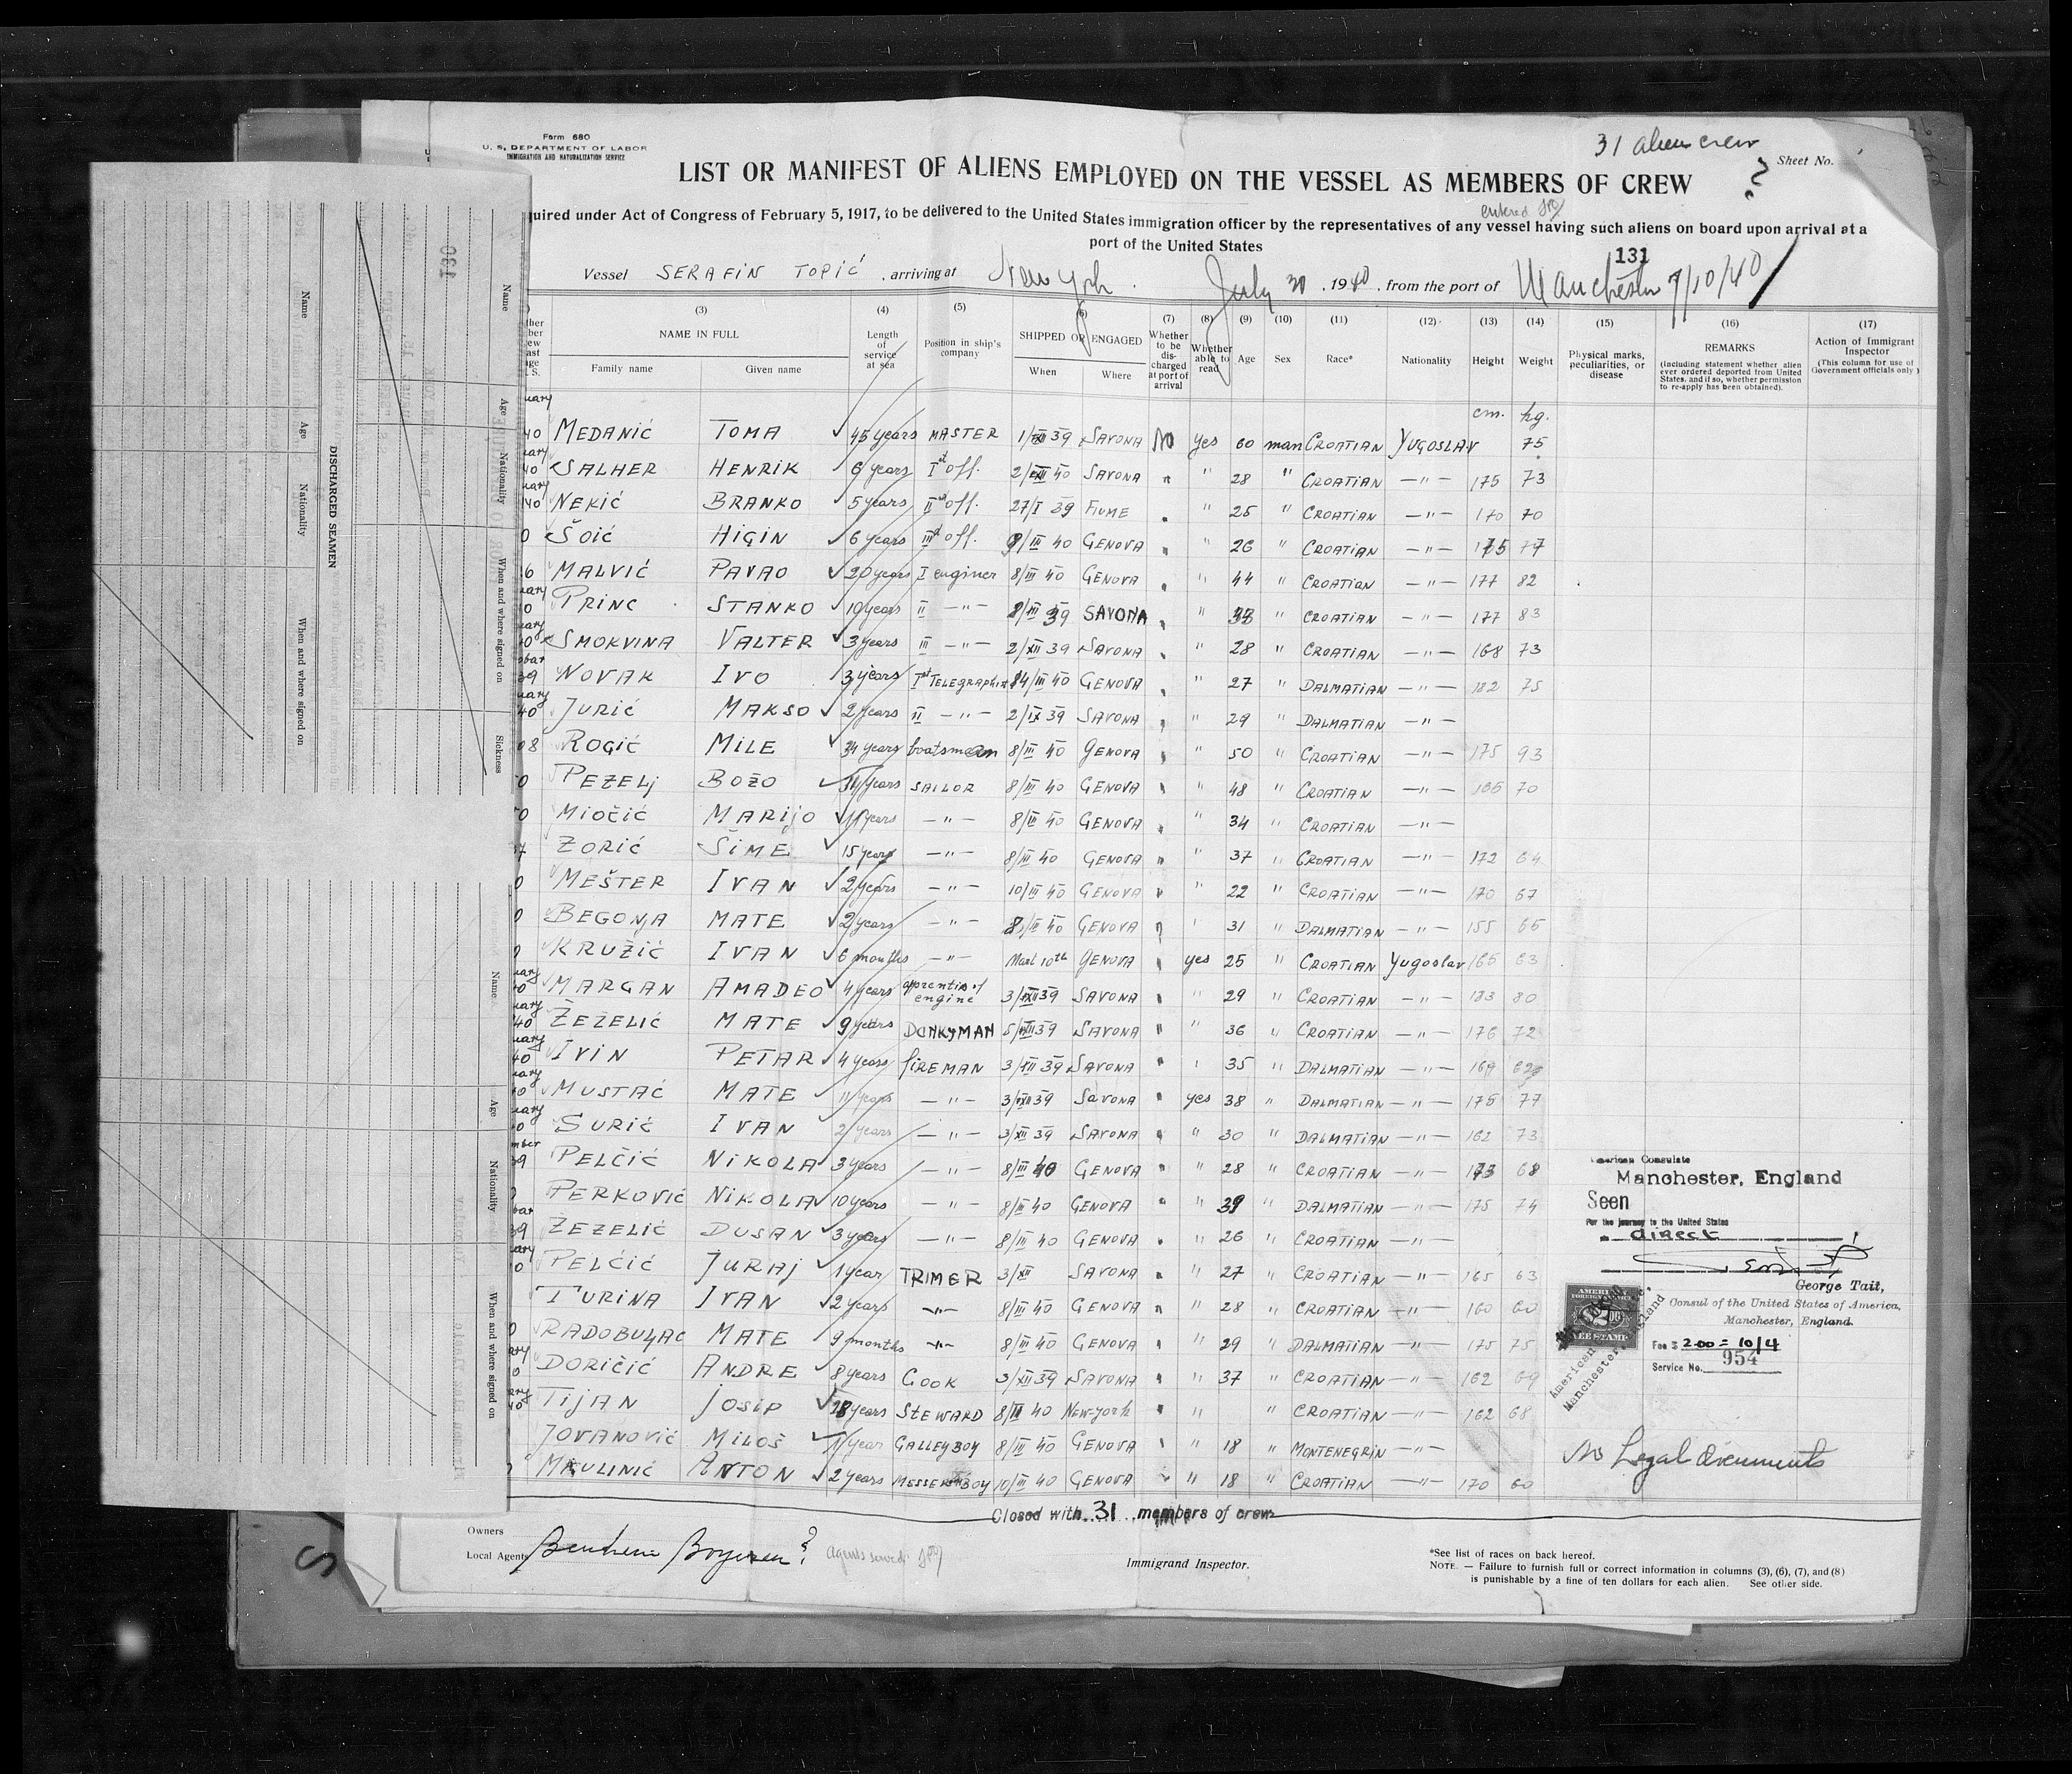 Form 680
U. S. DEPARTMENT OF LABOR
IMMIGRATION AND NATURALIZATION SERVICE
31 alien crew
Sheet No.
LIST OR MANIFEST OF ALIENS EMPLOYED ON THE VESSEL AS MEMBERS OF CREW
quired under Act of Congress of February 5, 1917, to be delivered to the United States immigration officer by the representatives of any vessel having such aliens on board upon arrival at a
port of the United States
131
Vessel SERAFIN TOPIĆ , arriving at New York . July 20 , 1940 , from the port of Manchester 7/10/40
(3) (4) (5) (6) (7) (8) (9) (10) (11) (12) (13) (14) (15) (16) (17)
NAME IN FULL Length of service at sea Position in ship's company SHIPPED OR ENGAGED Whether to be discharged at port of arrival Whether able to read Age Sex Race* Nationality Height Weight Physical marks, peculiarities, or disease REMARKS (Including statement whether alien ever ordered deported from United States, and if so, whether permission to re-apply has been obtained). Action of Immigrant Inspector (This column for use of Government officials only)
Family name Given name When Where
cm. kg.
MEDANIĆ TOMA 45 years MASTER 1/XII 39 SAVONA No yes 60 man CROATIAN YUGOSLAV 75
SALHER HENRIK 6 years Ist off. 2/XII 40 SAVONA " " 28 " CROATIAN —"— 175 73
NEKIĆ BRANKO 5 years II off. 27/I 39 FIUME " " 25 " CROATIAN —"— 170 70
ŠOIĆ HIGIN 6 years III off. 9/III 40 GENOVA " " 26 " CROATIAN —"— 175 77
MALVIĆ PAVAO 20 years I enginer 8/III 40 GENOVA " " 44 " CROATIAN —"— 177 82
PRINC STANKO 10 years II —"— 39 SAVONA " " " CROATIAN —"— 177 83
SMOKVINA VALTER 3 years III —"— 2/XII 39 SAVONA " " 28 " CROATIAN —"— 168 73
NOVAK IVO 3 years Ist TELEGRAPHIST 14/III 40 GENOVA " " 27 " DALMATIAN —"— 182 75
JURIĆ MAKSO 2 years II —"— 2/IX 39 SAVONA " " 29 " DALMATIAN —"—
ROGIĆ MILE 34 years boatsman 8/III 40 GENOVA " " 50 " CROATIAN —"— 175 93
PEZELJ BOŽO years SAILOR 8/III 40 GENOVA " " 48 " CROATIAN —"— 70
MIOČIĆ MARIJO years —"— 8/III 40 GENOVA " " 34 " CROATIAN —"—
ZORIĆ ŠIME 15 years —"— 8/III 40 GENOVA " " 37 " CROATIAN —"— 172 64
MEŠTER IVAN 2 years —"— 10/III 40 GENOVA " " 22 " CROATIAN —"— 170 67
BEGONJA MATE 2 years —"— 8/III 40 GENOVA " " 31 " DALMATIAN —"— 155 65
KRUŽIĆ IVAN 6 months —"— 10th GENOVA " yes 25 " CROATIAN Yugoslav 165 63
MARGAN AMADEO 4 years apprentis of engine 3/XII 39 SAVONA " " 29 " CROATIAN —"— 183 80
ŽEŽELIĆ MATE 9 years DONKYMAN 5/XII 39 SAVONA " " 36 " CROATIAN —"— 176 72
IVIN PETAR 4 years fIREMAN 3/XII 39 SAVONA " " 35 " DALMATIAN —"— 169 62
MUSTAĆ MATE 11 years —"— 3/XII 39 SAVONA " yes 38 " DALMATIAN —"— 175 77
SURIĆ IVAN 2 years —"— 3/XII 39 SAVONA " " 30 " DALMATIAN —"— 162 73
PELČIĆ NIKOLA 3 years —"— 8/III 40 GENOVA " " 28 " CROATIAN —"— 173 68
PERKOVIĆ NIKOLA 10 years —"— 8/III 40 GENOVA " " 39 " DALMATIAN —"— 175 74
ŽEZELIĆ DUSAN 3 years —"— 8/III 40 GENOVA " " 26 " CROATIAN —"—
PELČIĆ JURAJ 1 year TRIMER 3/XII SAVONA " " 27 " CROATIAN —"— 165 63
TURINA IVAN 2 years —"— 8/III 40 GENOVA " " 28 " CROATIAN —"— 160 60
RADOBULJAC MATE 9 months —"— 8/III 40 GENOVA " " 29 " DALMATIAN —"— 175 75
DORIČIĆ ANDRE 8 years COOK 3/XII 39 SAVONA " " 37 " CROATIAN —"— 162 69
TIJAN JOSIP 28 years STEWARD 8/III 40 New-York " " " CROATIAN —"— 162 68
JOVANOVIĆ MILOŠ 1 year GALLEYBOY 8/III 40 GENOVA " " 18 " MONTENEGRIN —"—
MAULINIĆ ANTON 2 years MESSEBOY 10/III 40 GENOVA " " 18 " CROATIAN —"— 170 60
Closed with 31 members of crew
American Consulate
Manchester, England
Seen
For the journey to the United States
direct
George Tait,
Consul of the United States of America,
Manchester, England.
Fee $ 2.00 = 10/4
Service No. 954
FEE STAMP
No Legal documents
Owners
Local Agents
Immigrant Inspector.
*See list of races on back hereof.
NOTE. — Failure to furnish full or correct information in columns (3), (6), (7), and (8)
is punishable by a fine of ten dollars for each alien. See other side.
130
DISCHARGED SEAMEN
Name Age Nationality When and where signed on
Name Age Nationality When and where signed on Sickness
Name Age Nationality When and where signed on